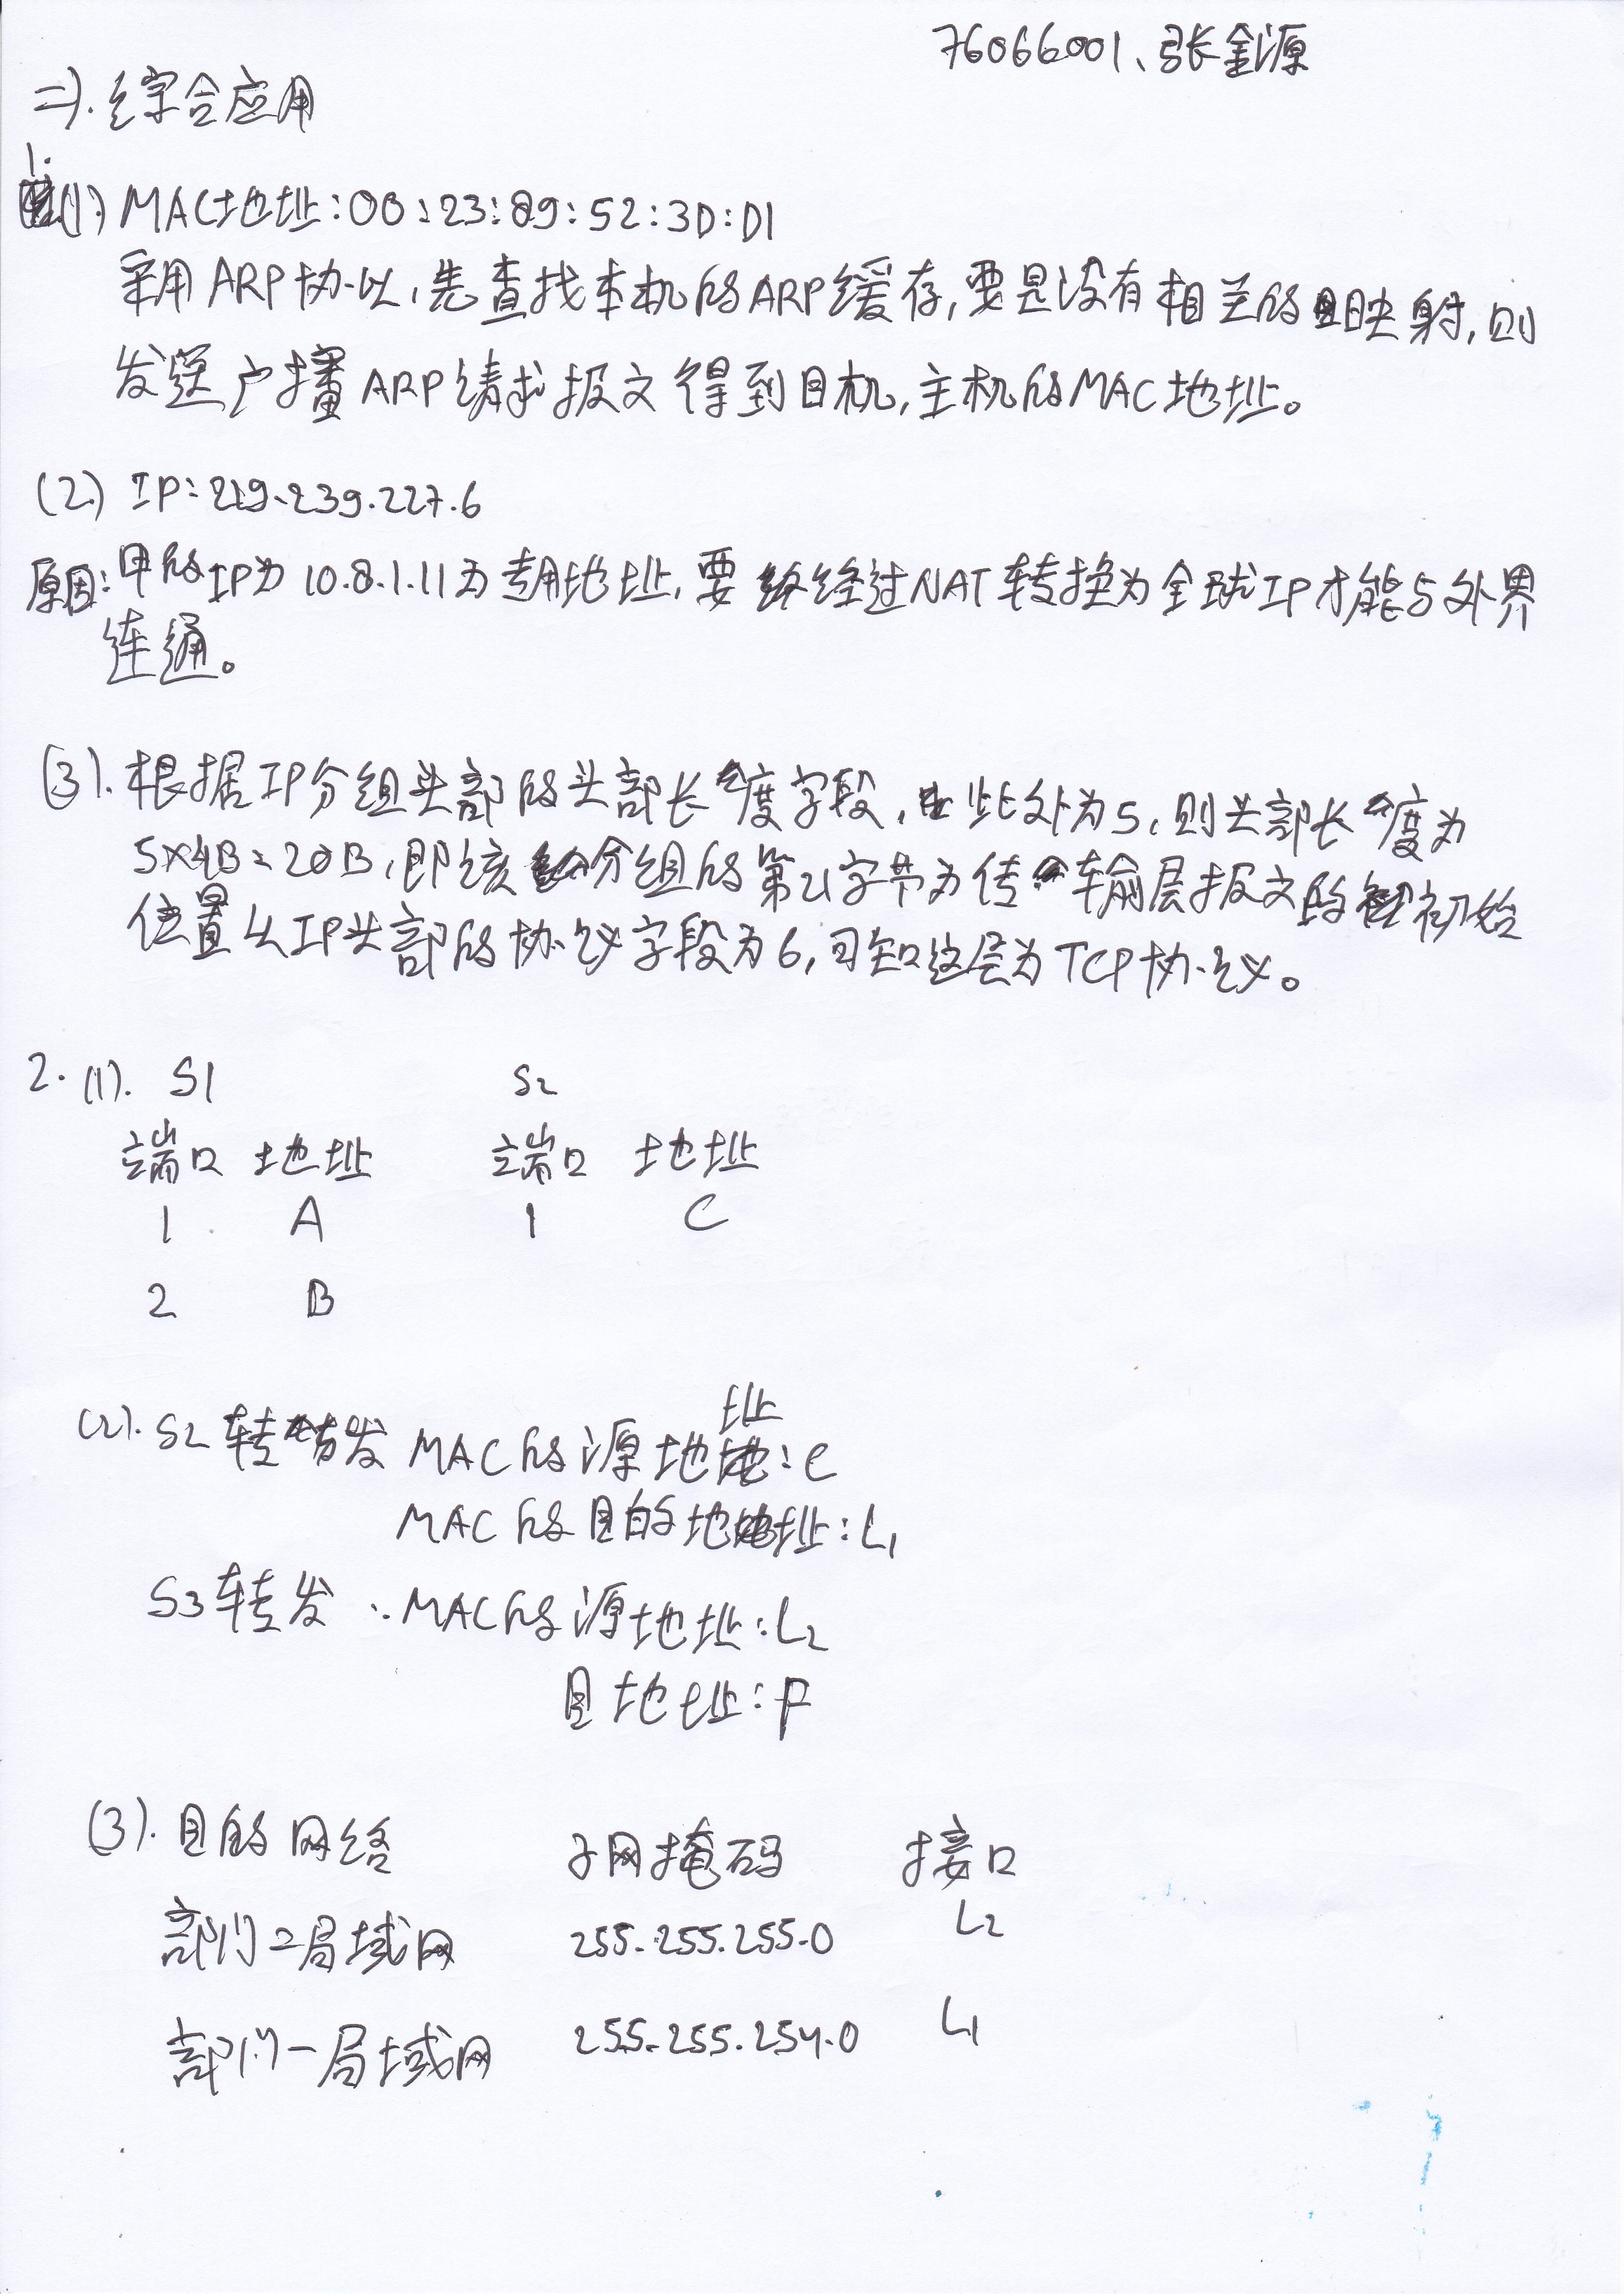 76066001、张金源
二).综合应用
1.
(1) MAC地址:00:23:89:52:3D:D1
采用ARP协议,先查找本机的ARP缓存,要是没有相关的映射,则
发送广播ARP请求报文得到目机,主机的MAC地址。
(2) IP:219.239.227.6
原因:甲的IP为10.8.1.11为专用地址,要经过NAT转换为全球IP才能与外界
连通。
(3).根据IP分组头部的头部长度字段,此处为5,则头部长度为
5×4B=20B,即该分组的第21字节为传输层报文的初始
位置从IP头部的协议字段为6,可知这层为TCP协议。
2. (1). S1 S2
端口 地址 端口 地址
1 A 1 C
2 B
(2). S2转发 MAC的源地址:C
MAC的目的地址:L1
S3转发:MAC的源地址:L2
目地址:F
(3).目的网络 子网掩码 接口
部门二局域网 255.255.255.0 L2
部门一局域网 255.255.254.0 L1